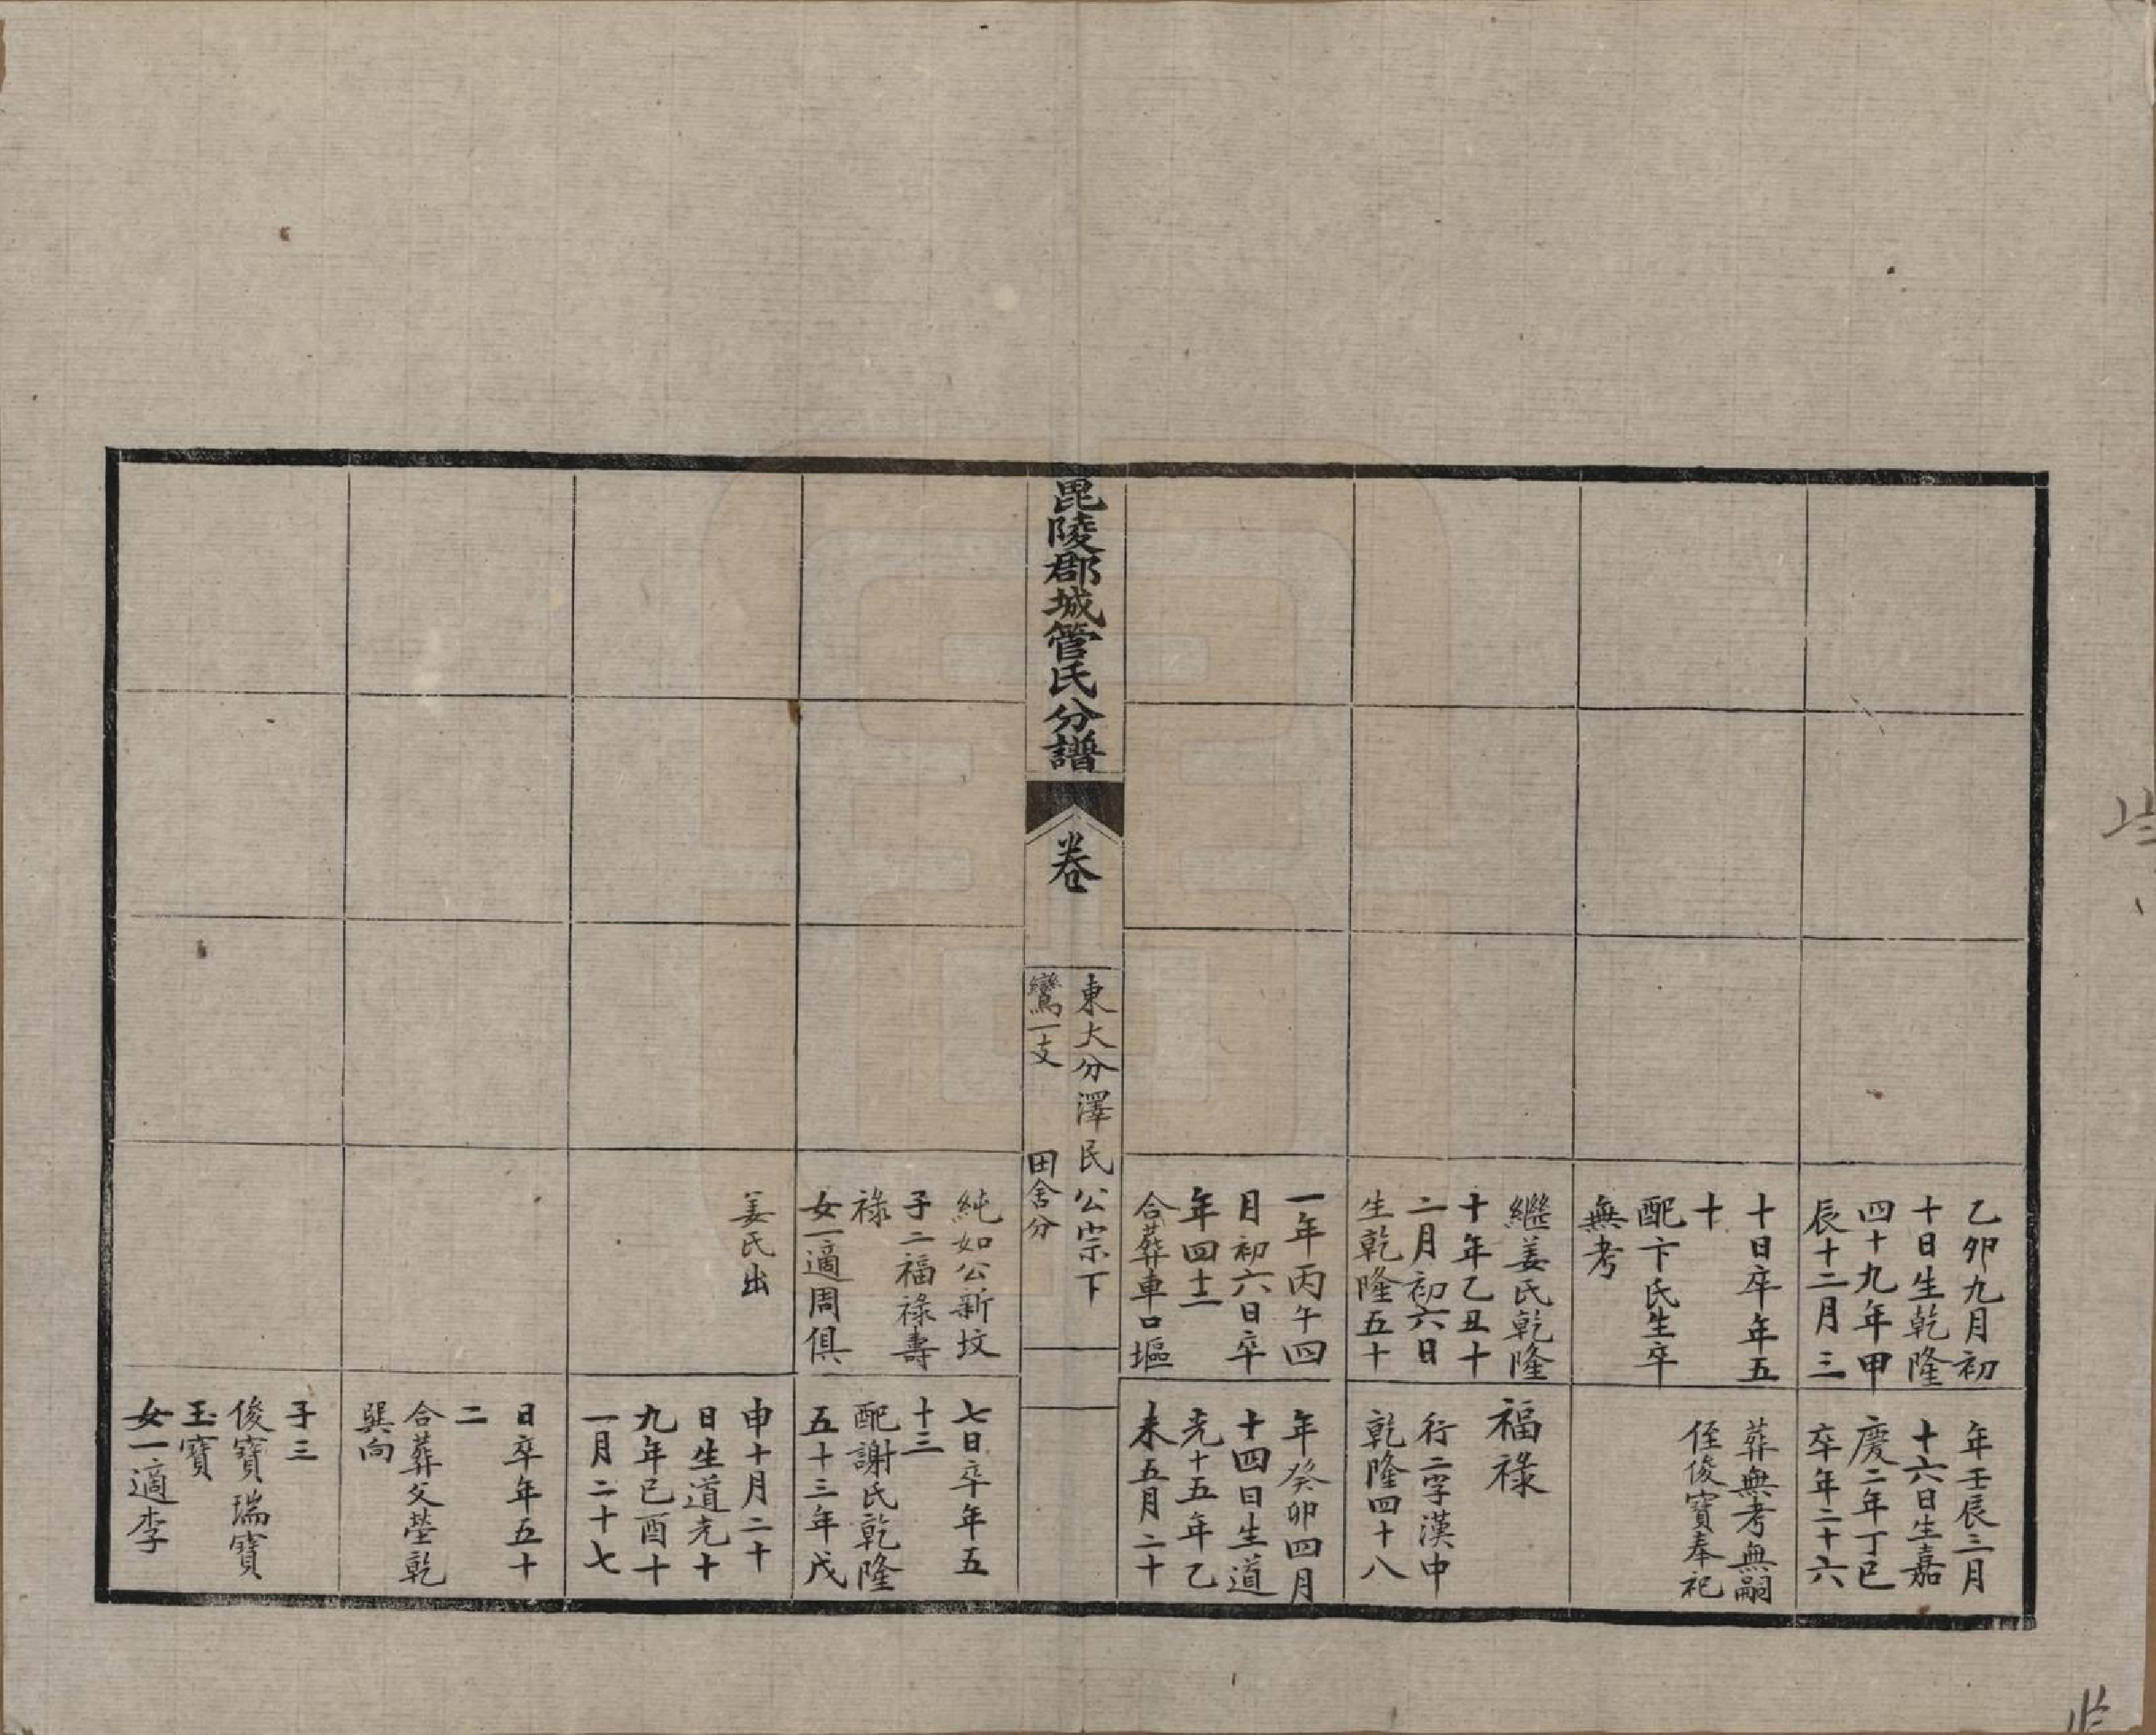 乙卯九月初
十日生乾隆
四十九年甲
辰十二月三
十日卒年五
十
配卞氏生卒
無考
繼姜氏乾隆
十年乙丑十
二月初六日
生乾隆五十
一年丙午四
月初六日卒
年四十二
合葬車口塸
年壬辰三月
十六日生嘉
慶二年丁巳
卒年二十六
葬無考無嗣
侄俊寶奉祀
福祿
行二字漢申
乾隆四十八
年癸卯四月
十四日生道
光十五年乙
未五月二十
毘陵郡城管氏分譜
卷
東大分澤民公宗下
鸞一支
田舍分
純如公新坟
子二福祿壽
祿
女一適周俱
姜氏出
七日卒年五
十三
配謝氏乾隆
五十三年戊
申十月二十
日生道光十
九年己酉十
一月二十七
日卒年五十
二
合葬父塋乾
巽向
子三
俊寶瑞寶
玉寶
女一適李